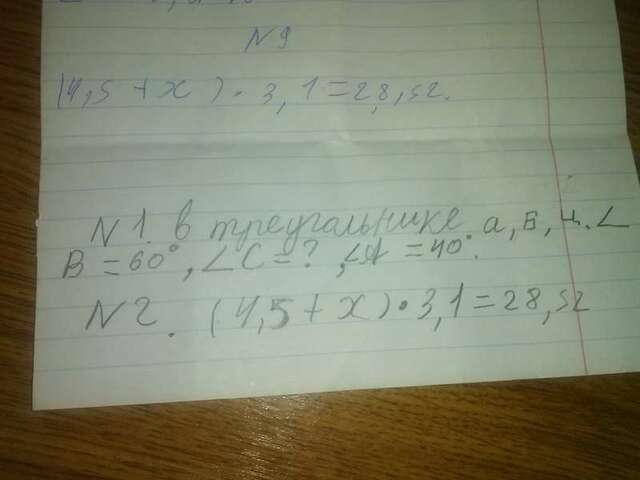 N9
(4,5 + x) · 3,1 = 28,52.
N1. в треугольнике а, Б, Ц. ∠
В = 60°, ∠C = ?, ∠A = 40°.
N2. (4,5 + x) · 3,1 = 28,52